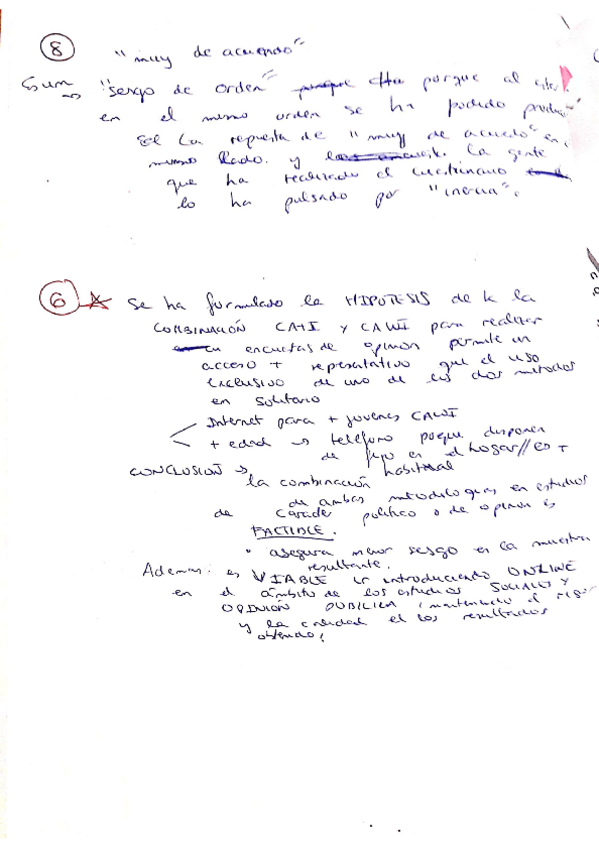 8
"muy de acuerdo"
"sesgo de orden" porque al
en el mismo orden se ha podido
El La repuesta de "muy de acuedo" en
mismo lado. y la gente
que ha realizado el cuestinario
lo ha pulsado por "inercia".
6 Se ha formulado la HIPOTESIS de k la
COMBINACIÓN CATI y CAWI para realizar
encuestas de opinion permite un
acceso + representativo que el uso
exclusivo de uno de los dos metodos
en solitario
Internet para + jovenes CAWI
+ edad → telefono poque disponen
de fijo en el hogar // es +
habitual
CONCLUSIÓN → la combinación
de ambas metodologias en estudios
de caracter politico o de opinion es
FACTIBLE.
" asegura menor sesgo en la muestra
resultante.
Ademas: es VIABLE ir introduciendo ONLINE
en el ámbito de los estudios SOCIALES y
OPINIÓN PUBLICA, manteniendo el rigor
y la calidad los resultados